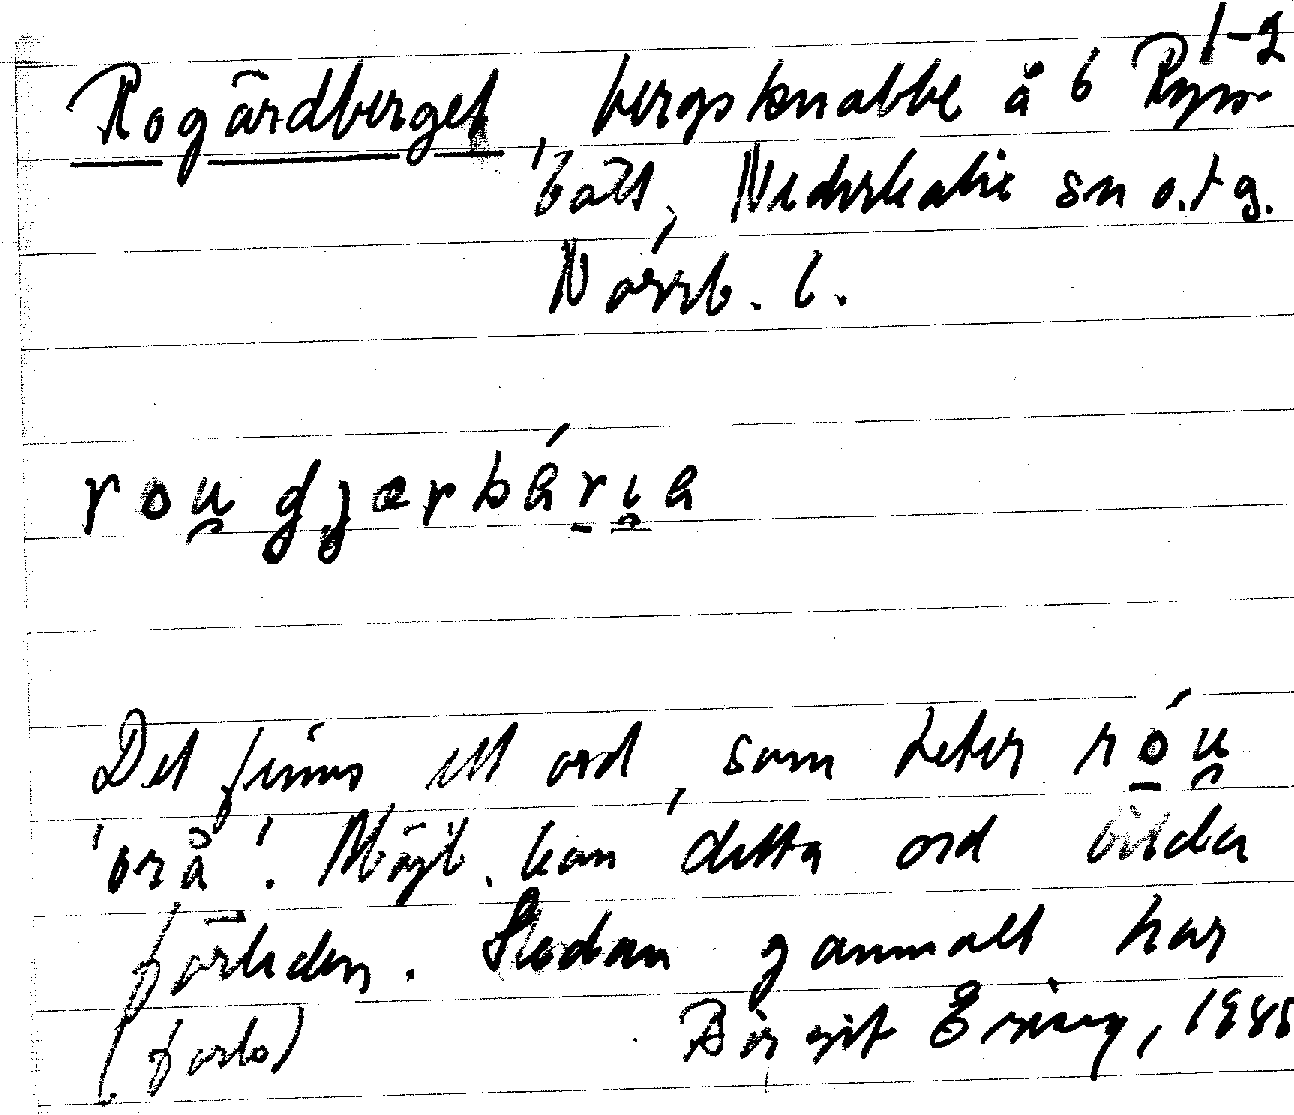 1-2
Rogärdberget, bergsknabbe å 6 Rysse-
bält, Nederkalix sn o. tg.
Norrb. l.
rou̯ gjærbárɪa
Det finns ett ord, som heter róu̯
'orå'. Möjl. kan detta ord bilda
förleden. Sedan gammalt har
(forts) Birgit Ering, 1985